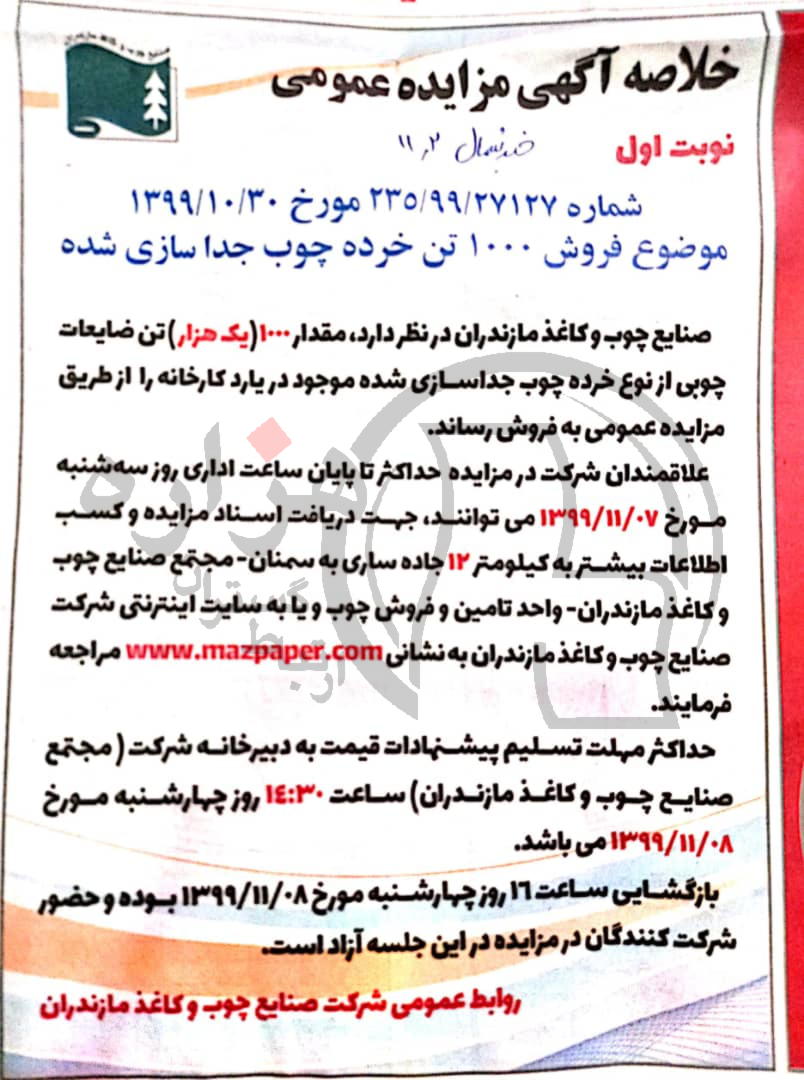 خلاصه آگهی مزایده عمومی
نوبت اول
۱۱٫۲
شماره ۲۳۵/۹۹/۲۷۱۲۷ مورخ ۱۳۹۹/۱۰/۳۰
موضوع فروش ۱۰۰۰ تن خرده چوب جدا سازی شده
صنایع چوب و کاغذ مازندران در نظر دارد، مقدار ۱۰۰۰(یک هزار) تن ضایعات
چوبی از نوع خرده چوب جداسازی شده موجود در یارد کارخانه را از طریق
مزایده عمومی به فروش رساند.
علاقمندان شرکت در مزایده حداکثر تا پایان ساعت اداری روز سه‌شنبه
مورخ ۱۳۹۹/۱۱/۰۷ می توانند، جهت دریافت اسناد مزایده و کسب
اطلاعات بیشتر به کیلومتر ۱۲ جاده ساری به سمنان- مجتمع صنایع چوب
و کاغذ مازندران- واحد تامین و فروش چوب و یا به سایت اینترنتی شرکت
صنایع چوب و کاغذ مازندران به نشانی www.mazpaper.com مراجعه
فرمایند.
حداکثر مهلت تسلیم پیشنهادات قیمت به دبیرخانه شرکت ( مجتمع
صنایع چوب و کاغذ مازندران) ساعت ۱۴:۳۰ روز چهارشنبه مورخ
۱۳۹۹/۱۱/۰۸ می باشد.
بازگشایی ساعت ۱۶ روز چهارشنبه مورخ ۱۳۹۹/۱۱/۰۸ بوده و حضور
شرکت کنندگان در مزایده در این جلسه آزاد است.
روابط عمومی شرکت صنایع چوب و کاغذ مازندران
هزاره